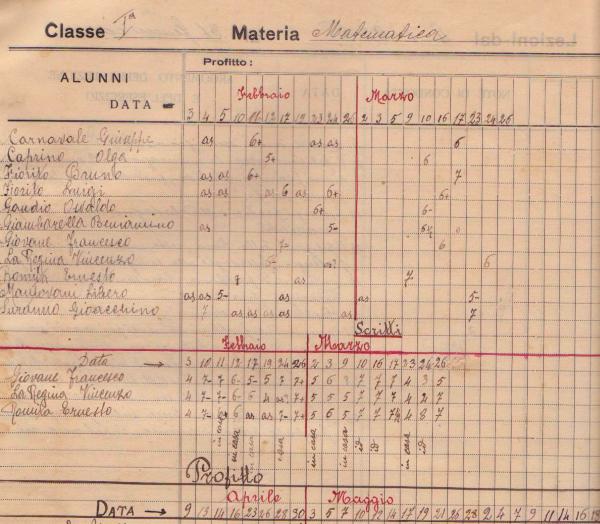 Classe Iª Materia Matematica
Profitto:
ALUNNI
Febbraio Marzo
DATA
3 4 5 10 11 12 17 19 23 24 26 2 3 5 9 10 16 17 23 24 26
Carnavale Giuseppe as 6+ as as 6
Caprino Olga 5+ 6
Fiorito Bruno as as 6+ 7
Fiorito Luigi as as as 6 as 6+ 6+
Gaudio Osvaldo 6+ 6-
Giambarella Beniamino as 5- 6½
Giovane Francesco 7- 6
La Regina Vincenzo 5- as 6
Romita Ernesto as 7
Mantovani Libero as as 5- as as 5-
Saranno Gioacchino 7 as as as as as 7
Scritti
Febbraio Marzo
Data → 3 10 11 12 17 19 24 26 2 3 9 10 16 17 23 24 26
Giovane Francesco 4 7- 7 6- 5- 5 7 7+ 5 6 7 7 7 4 3 5
La Regina Vincenzo 4 7- 7- 6- 6 4 as 7+ 5 5 5 7 7 7 4 2 7
Romita Ernesto 4 7- 6+ 6 as as 7- 7+ 5 6 5 7 7 7½ 4 8 7
in casa in casa in casa in casa in casa id id in casa id
Profitto
Aprile Maggio
DATA → 9 13 14 16 23 26 28 30 3 5 7 10 12 14 17 19 21 26 28 2 4 7 9 11 14 16 18